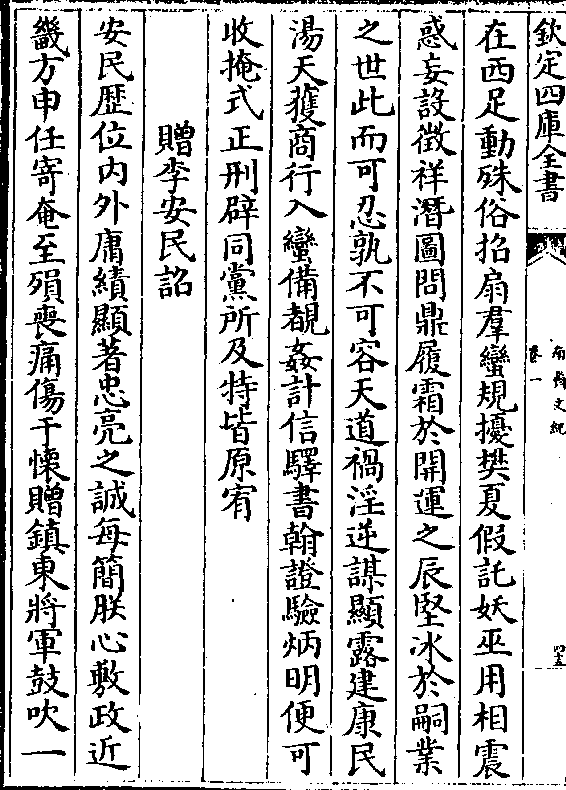 欽定四庫全書
南齊文紀
卷一
四五
在西足動殊俗招扇羣蠻規擾樊夏假託妖巫用相震
惑妄設徵祥潛圖問鼎履霜於開運之辰堅冰於嗣業
之世此而可忍孰不可容天道禍淫逆謀顯露建康民
湯天獲商行入蠻備覩姦計信驛書翰證驗炳明便可
收掩式正刑辟同黨所及特皆原宥
贈李安民詔
安民歷位內外庸績顯著忠亮之誠每簡朕心敷政近
畿方申任寄奄至殞喪痛傷于懷贈鎮東將軍鼓吹一